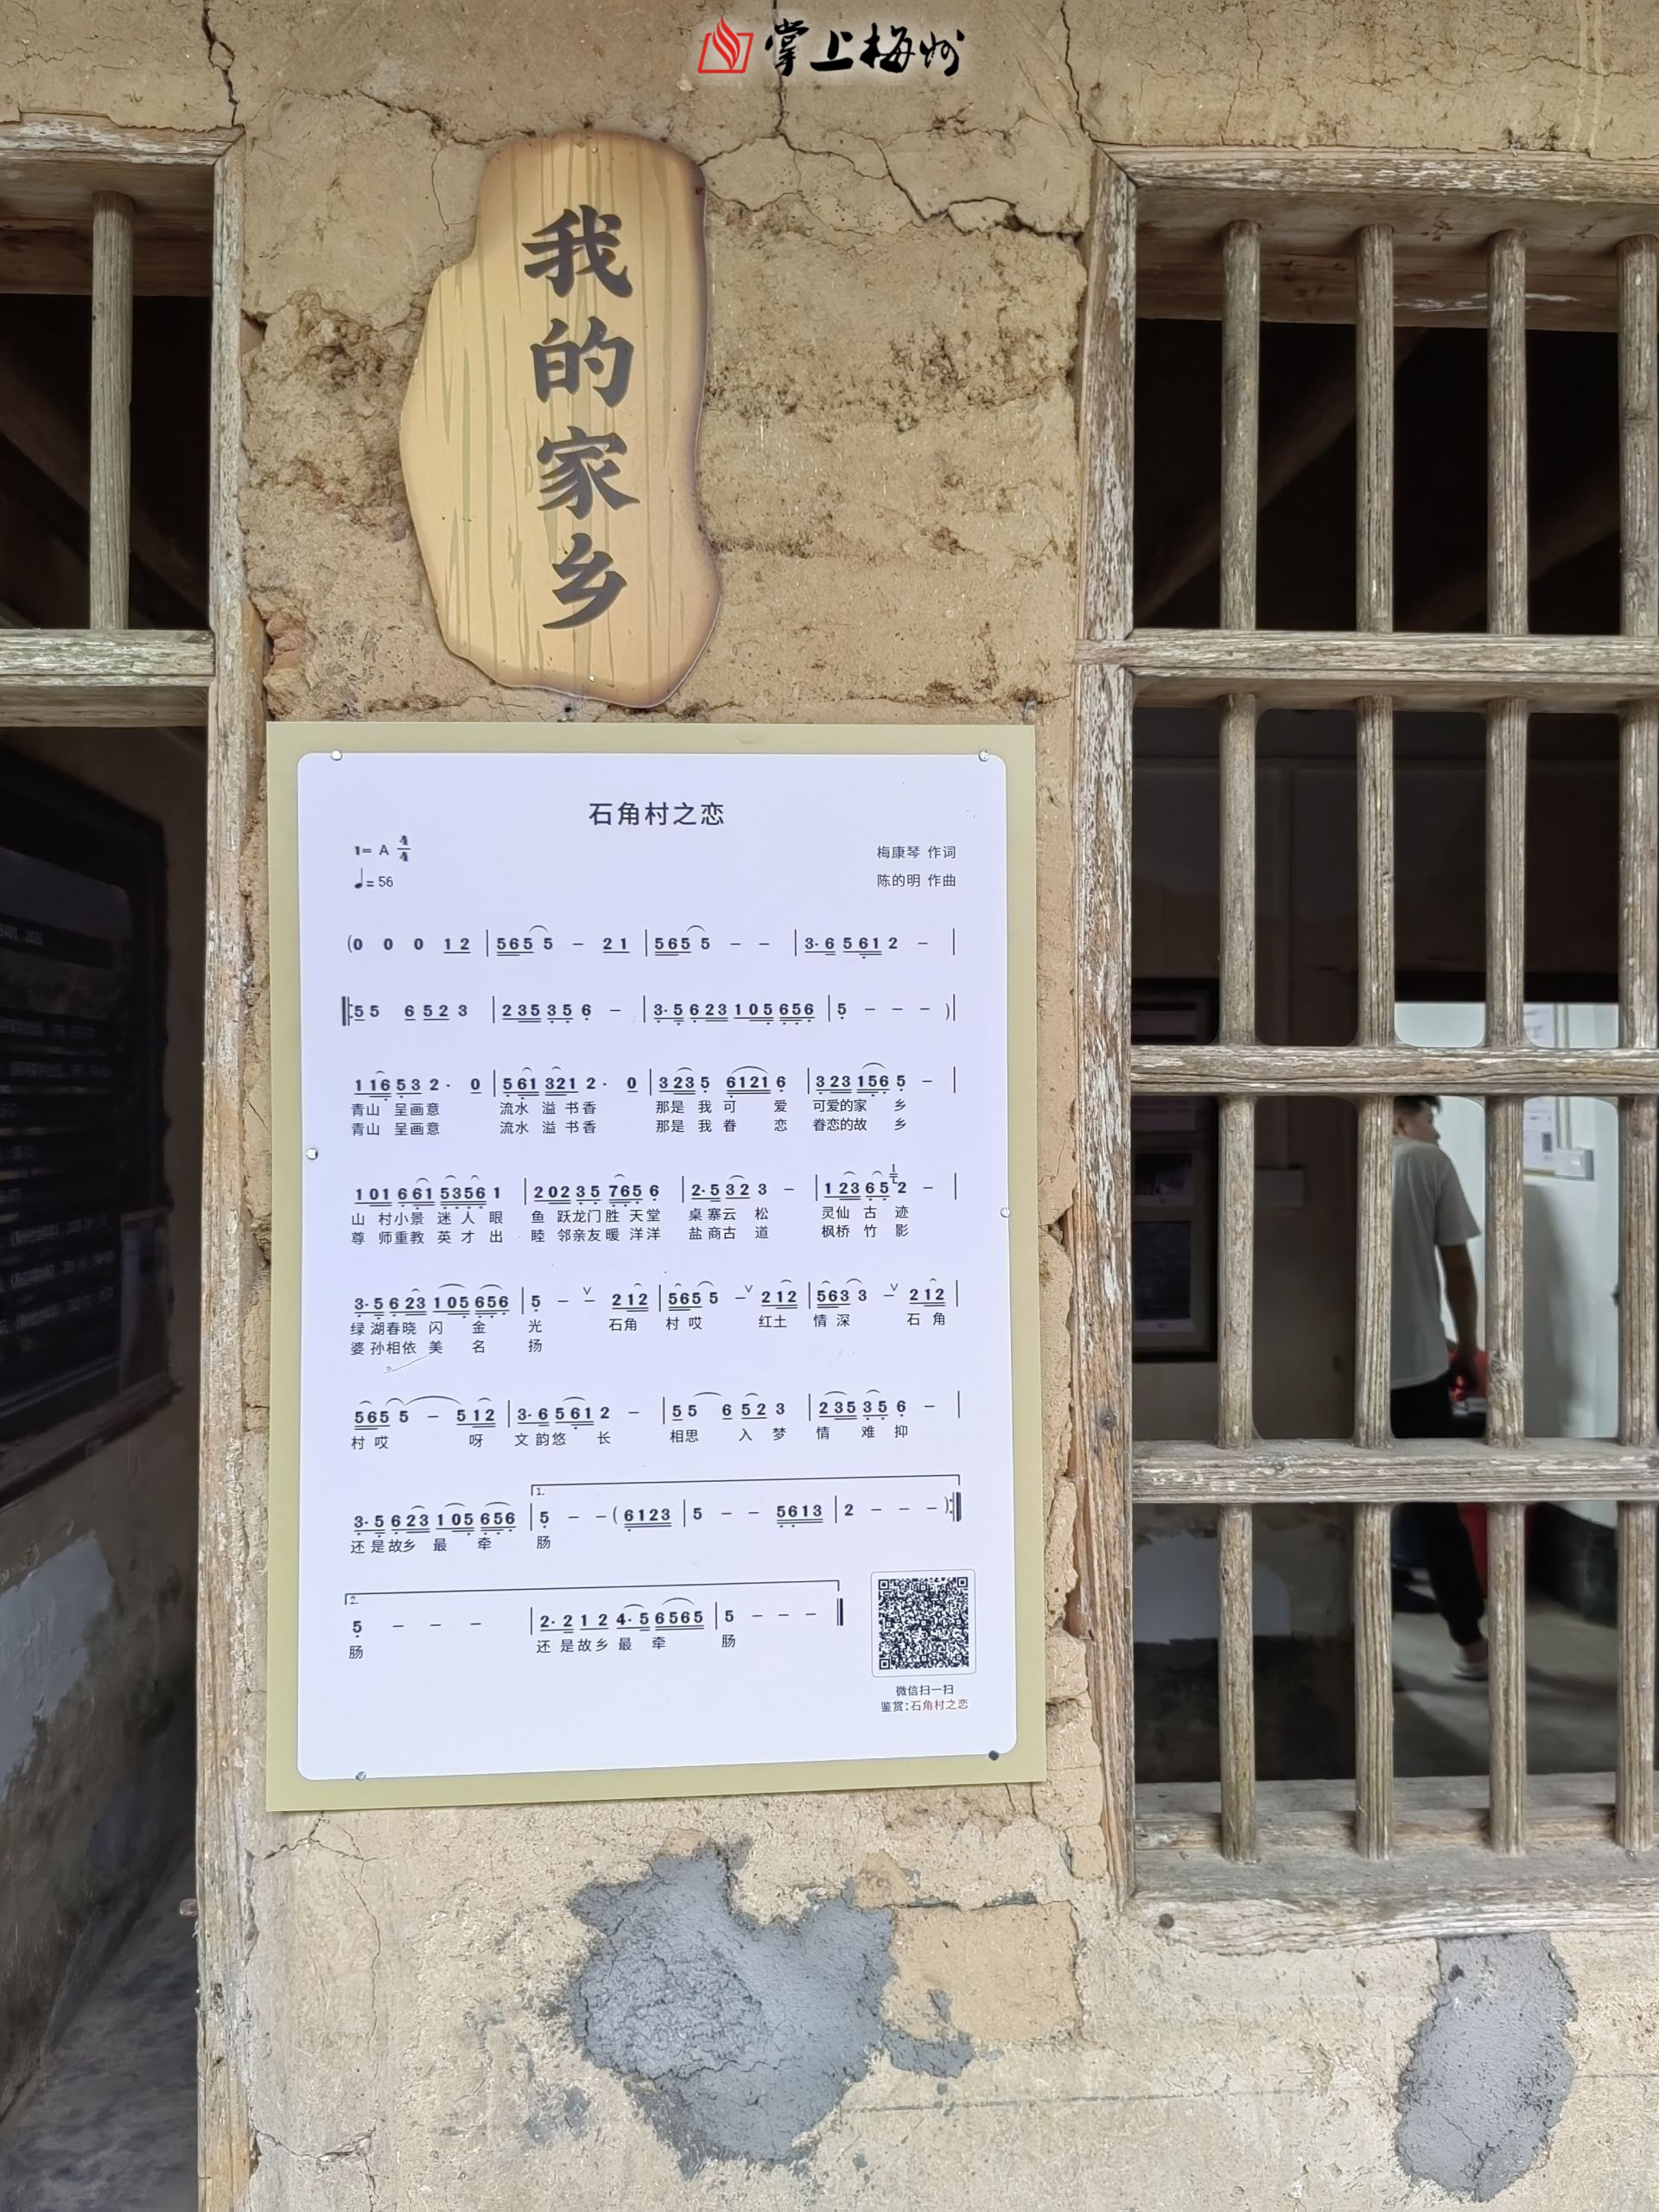 掌上梅州
我的家乡
石角村之恋
1= A 4/4
♩= 56
梅康琴 作词
陈的明 作曲
(0 0 0 1 2 | 565 5 – 2 1 | 565 5 – – | 3· 6 5 61 2 – |
‖:5 5 6 5 2 3 | 2 35 3 5 6 – | 3· 5 6 23 1 05 656 | 5 – – – )|
1 16 5 3 2 · 0 | 5 61 321 2 · 0 | 3 23 5 6121 6 | 3 23 156 5 – |
青山 呈画意 流水 溢 书香 那是 我 可 爱 可爱的家 乡
青山 呈画意 流水 溢 书香 那是 我 眷 恋 眷恋的故 乡
1 01 6 61 5356 1 | 2 02 3 5 765 6 | 2· 5 3 2 3 – | 1 23 6 5 2 – |
山 村小景 迷 人 眼 鱼 跃龙门胜 天堂 桌 寨云 松 灵仙 古 迹
尊 师重教 英 才 出 睦 邻亲友暖 洋洋 盐 商古 道 枫桥 竹 影
3· 5 6 23 1 05 656 | 5 – – 2 12 | 565 5 – 2 12 | 563 3 – 2 12 |
绿 湖春晓 闪 金 光 石角 村 哎 红土 情 深 石 角
婆 孙相依 美 名 扬
565 5 – 5 12 | 3· 6 5 61 2 – | 5 5 6 5 2 3 | 2 35 3 5 6 – |
村 哎 呀 文 韵悠 长 相思 入 梦 情 难 抑
1.
3· 5 6 23 1 05 656 | 5 – – ( 6123 | 5 – – 5613 | 2 – – – ):‖
还 是故乡 最 牵 肠
2.
5 – – – | 2· 2 1 2 4· 5 6565 | 5 – – – ‖
肠 还 是故乡 最 牵 肠
微信扫一扫
鉴赏:石角村之恋